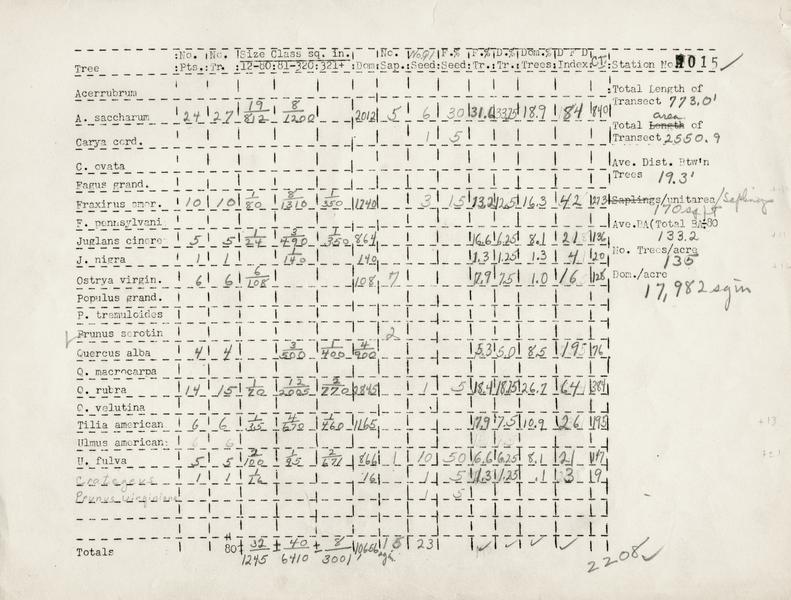 No. No. Size Class sq. in. No. No of F.% F.% D.% Dom.% D F D
Tree Pts. Tr. 12-80 81-320 321+ Dom. Sap. Seed. Seed. Tr. Tr. Trees Index CI Station No. 1015 ✓
Acerrubrum Total Length of
Transect 773.0'
A. saccharum 24 27 19/812 8/1200 2012 5 6 30 31.6 33.75 18.9 84 840
area
Total Length of
Carya cord. 1 5 Transect 2550.9
C. ovata Ave. Dist. Btw'n
Trees 19.3'
Fagus grand.
Fraxinus amer. 10 10 1/80 8/1310 1/350 1740 3 15 13.2 12.5 16.3 42 273 Saplings/unitarea/Saplings
170 sq ft
F. pennsylvani Ave.BA(Total BA-80
Juglans cinere 5 5 1/24 3/490 1/350 864 6.6 6.25 8.1 21 136 133.2
No. Trees/acre
J. nigra 1 1 1/140 140 1.3 1.25 1.3 4 20 135
Ostrya virgin. 6 6 6/108 108 7 7.9 7.5 1.0 16 128 Dom./acre
17,982 sq in
Populus grand.
P. tremuloides
✓ Prunus serotin 2
Quercus alba 4 4 3/500 1/400 4/900 5.3 5.0 8.5 19 76
Q. macrocarpa
Q. rubra 14 15 1/70 12/2005 2845 1 5 18.4 18.75 26.7 64 384
Q. velutina
Tilia american 6 6 1/35 4/670 1/460 1165 7.9 7.5 10.9 26 195
Ulmus american 6 6
U. fulva 5 5 2/100 1/95 2/671 866 1 10 50 6.6 6.25 8.1 21 147
Crataegus 1 1 1/16 16 1 5 1.3 1.25 .1 3 9
Prunus virginiana 1 5
Totals 80 32/1245 + 40/6410 + 8/3001 10656 15 23 ✓ ✓ ✓ ✓
2208 ✓